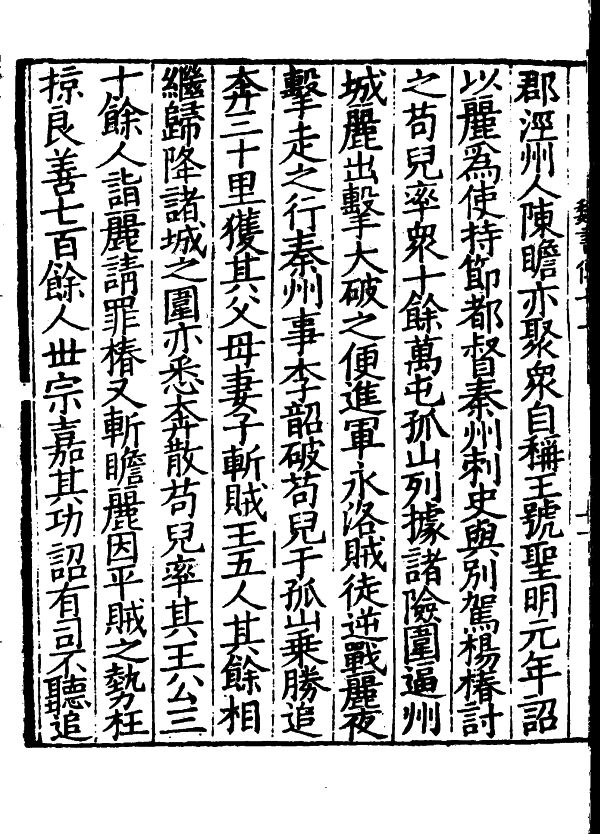 郡涇州人陳瞻亦聚衆自稱王號聖明元年詔
以麗爲使持節都督秦州刺史與別駕楊椿討
之苟兒率衆十餘萬屯孤山列據諸險圍逼州
城麗出擊大破之便進軍永洛賊徒逆戰麗夜
擊走之行秦州事李韶破苟兒于孤山乗勝追
奔三十里獲其父母妻子斬賊王五人其餘相
繼歸降諸城之圍亦悉奔散苟兒率其王公三
十餘人詣麗請罪椿又斬瞻麗因平賊之勢枉
掠良善七百餘人世宗嘉其功詔有司不聽追